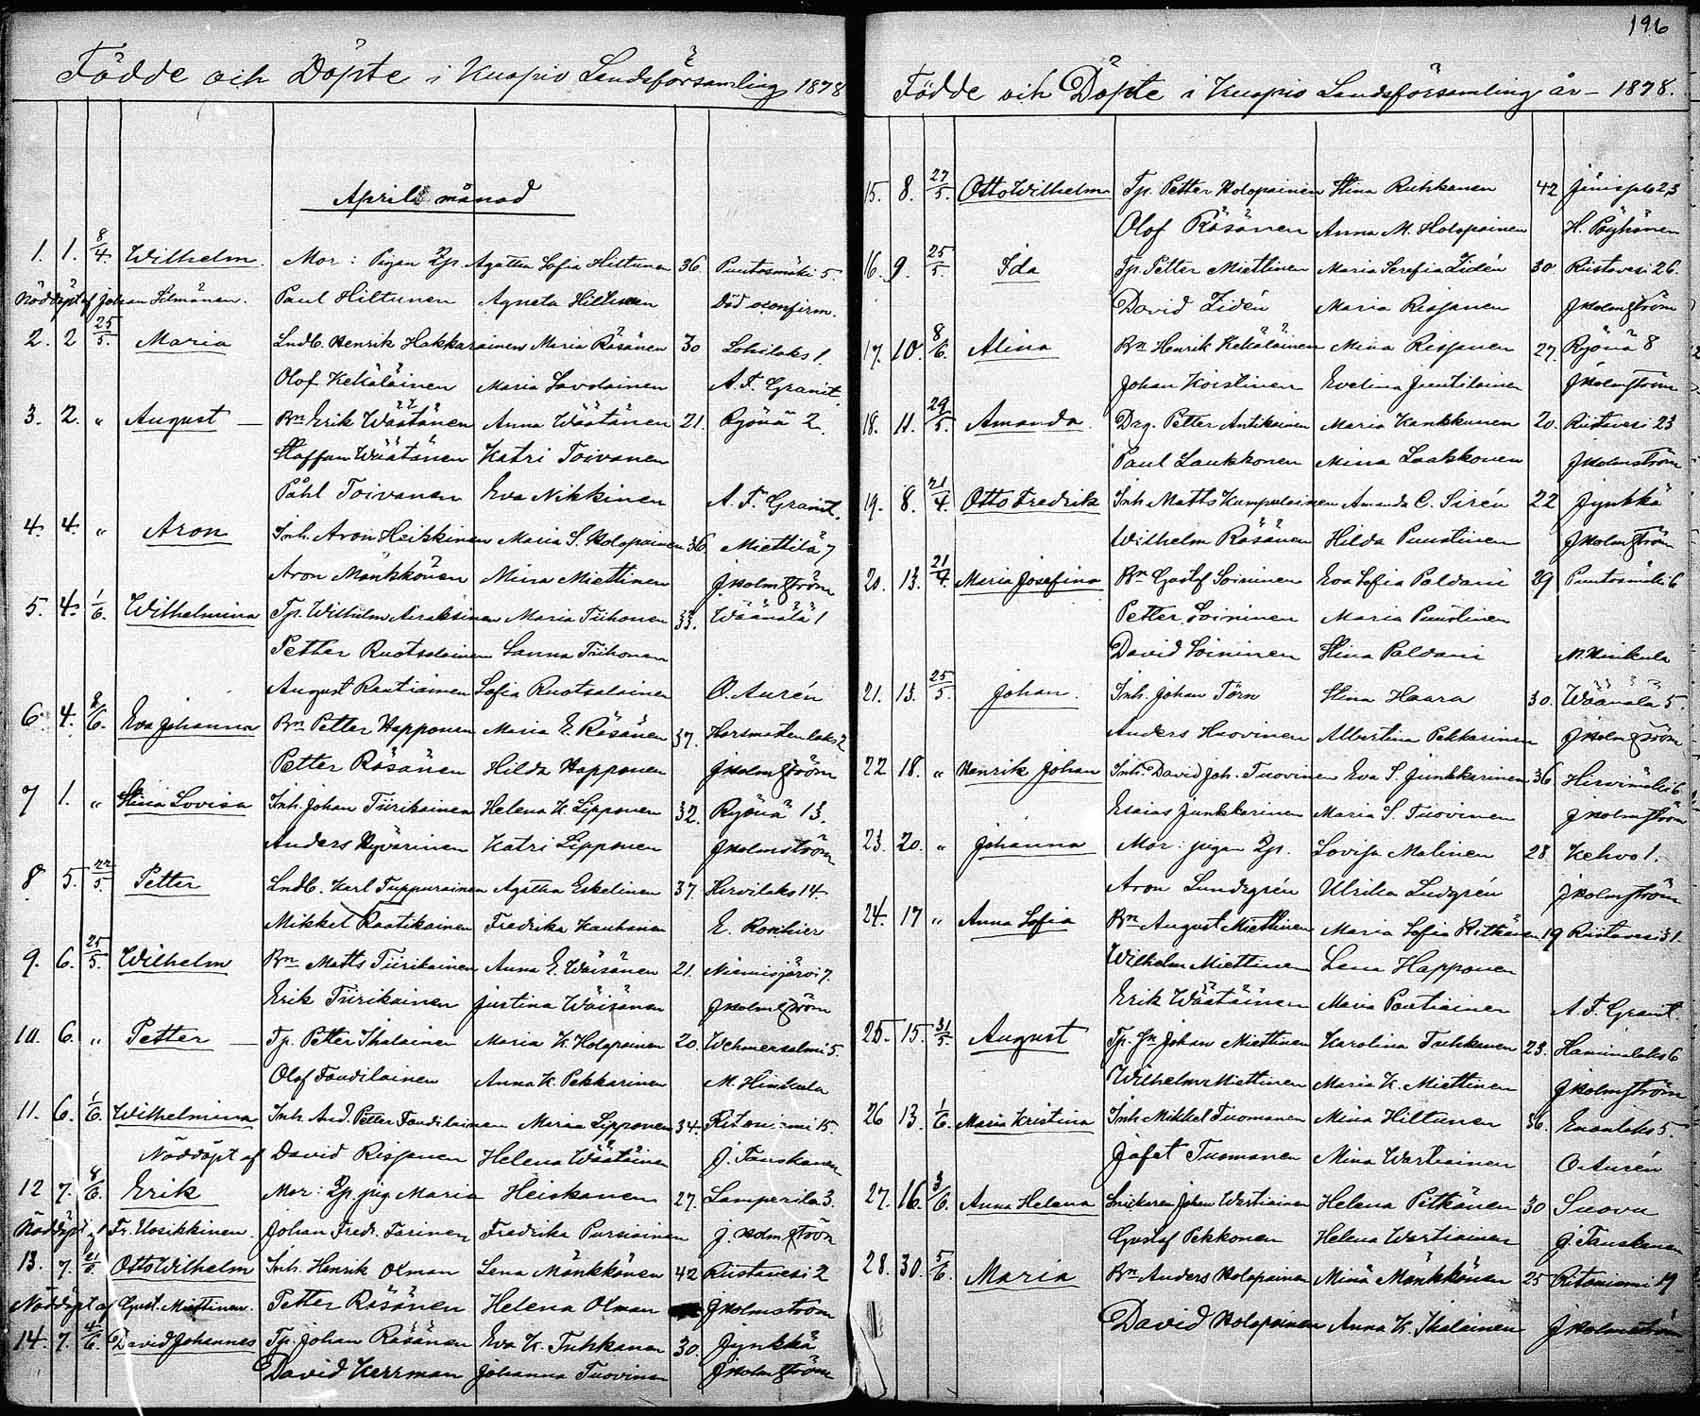 Födde och Döpte i Kuopio Landsförsamling 1878
Aprill månad
1. 1. 8/4. Wilhelm. Mor: Pigan Agatha Sofia Hiltunen 36. Puutosmäki 5.
Nöddöpt af Johan Silmänen. Paul Hiltunen Agneta Hiltunen Död o confirm.
2. 2 25/5. Maria Lndb. Henrik Hakkarainen Maria Räsänen 30 Lohilaks 1.
Olof Kekäläinen Maria Savolainen A. F. Granit.
3. 2. " August Bn Erik Wäätänen Anna Wäätänen 21. Ryönä 2.
Staffan Wäätänen Katri Toivanen
Påhl Toivanen Eva Nikkinen A. F. Granit.
4. 4. " Aron Inh. Aron Heikkinen Maria S. Holopainen 36 Miettilä 7
Aron Mönkkönen Mina Miettinen J Holmström
5. 4. 1/6. Wilhelmina Tp. Wilhelm Airaksinen Maria Tiihonen 33. Wäänälä 1
Petter Ruotsalainen Sanna Tiihonen
August Rautiainen Sofia Ruotsalainen O. Aurén
6. 4. 8/6. Eva Johanna Bn Petter Happonen Maria E. Räsänen 37. Horsmanlaks 2
Petter Räsänen Hilda Happonen J Holmström
7 1. " Stina Lovisa Inh. Johan Tiirikainen Helena K. Lipponen 32. Ryönä 13.
Anders Hyvärinen Katri Lipponen J Holmström
8 5. 22/5. Petter Lndb. Karl Tuppurainen Agatha Eskelinen 37. Hirvilaks 14.
Mikkel Raatikainen Fredrika Kauhanen E. Romhier
9. 6. 25/5. Wilhelm Bn Matts Tiirikainen Anna E. Wäisänen 21. Niemisjärvi 7.
Erik Tiirikainen Justina Wäisänen J Holmström
10. 6. " Petter Tp. Petter Ihalainen Maria K. Holopainen 20. Wehmersalmi 5.
Olof Taudilainen Anna K. Pekkarinen M. Hinkula
11. 6. 1/6. Wilhelmina Inh. And. Petter Taudilainen Maria Lipponen 34. Ritoniemi 15.
Nöddöpt af David Rissanen Helena Wäätäinen J. Tanskanen
12 7. 8/6. Erik Mor: pig Maria Heiskanen 27. Lamperila 3.
Nöddöpt af Fr. Uosikkinen. Johan Fredr. Tarinen Fredrika Pursiainen J. Holmström
13. 7. Otto Wilhelm Inh. Henrik Olman Lena Mönkkönen 42 Riistavesi 2
Nöddöpt af Gust. Miettinen. Petter Räsänen Helena Olman J Holmström
14. 7. 4/6. David Johannes Tp. Johan Räsänen Eva K. Tuhkanen 30. Jynkkä
David Herrman Johanna Tuovinen J Holmström
196
Födde och Döpte i Kuopio Landsförsamling år - 1878.
15. 8. 27/5. Otto Wilhelm Tp. Petter Holopainen Stina Ruhkanen 42 Jänissalo 23
Olof Räsänen Anna M. Holopainen H. Pöyhönen
16. 9. 25/5. Ida Tp. Petter Miettinen Maria Serefia Lidén 30 Riistavesi 26.
David Lidén Maria Rissanen J Holmström
17. 10. 8/6. Alina Bn Henrik Kekäläinen Mina Rissanen 27. Ryönä 8
Johan Koistinen Evelina Juutilainen J Holmström
18. 11. 29/5. Amanda Drg. Petter Antikainen Maria Kankkunen 20. Riistavesi 23
Paul Laukkonen Mina Laakkonen J Holmström
19. 8. 21/4. Otto Fredrik Inh. Matts Kumpulainen Amanda C. Sirén 22 Jynkkä
Wilhelm Räsänen Hilda Puustinen J Holmström
20. 13. 21/4. Maria Josefina Bn Gustaf Soininen Eva Sofia Paldani 39 Puutosmäki 6
Petter Soininen Maria Puustinen
David Soininen Stina Paldani M. Hinkula
21. 13. 25/5. Johan. Inh. Johan Törn Stina Haara 30. Wäänälä 5.
Anders Huovinen Albertina Pekkarinen J Holmström
22 18. " Henrik Johan Inh. David Joh. Tuovinen Eva S. Junkkarinen 36 Hirvimäki 6
Esaias Junkkarinen Maria S. Tuovinen J Holmström
23. 20. " Johanna Mor: pigan Lovisa Malinen 28. Kehvo 1.
Aron Lundegrén Ulrika Ludgrén J Holmström
24. 17 " Anna Sofia Bn August Miettinen Maria Sofia Pitkänen 19 Riistavesi 31.
Wilhelm Miettinen Lena Happonen
Erik Wäätäinen Maria Pentiainen A. F. Granit.
25. 15. 31/5. August Tp. Johan Miettinen Karolina Tuhkanen 23. Haminalaks 6
Wilhelm Miettinen Maria K. Miettinen J Holmström
26 13. 1/6. Maria Kristina Inh Mikkel Tuomanen Mina Hiltunen 36. Enonlaks 5.
Jafet Tuomanen Mina Wartiainen O. Aurén
27. 16. 3/6. Anna Helena Snickaren Johan Wartiainen Helena Pitkänen 30 Suovu
Gustaf Pekkonen Helena Wartiainen J. Tanskanen
28. 30. 5/6. Maria Bn Anders Holopainen Mina Mönkkönen 25 Ritoniemi 19
David Holopainen Anna K. Ihalainen J Holmström